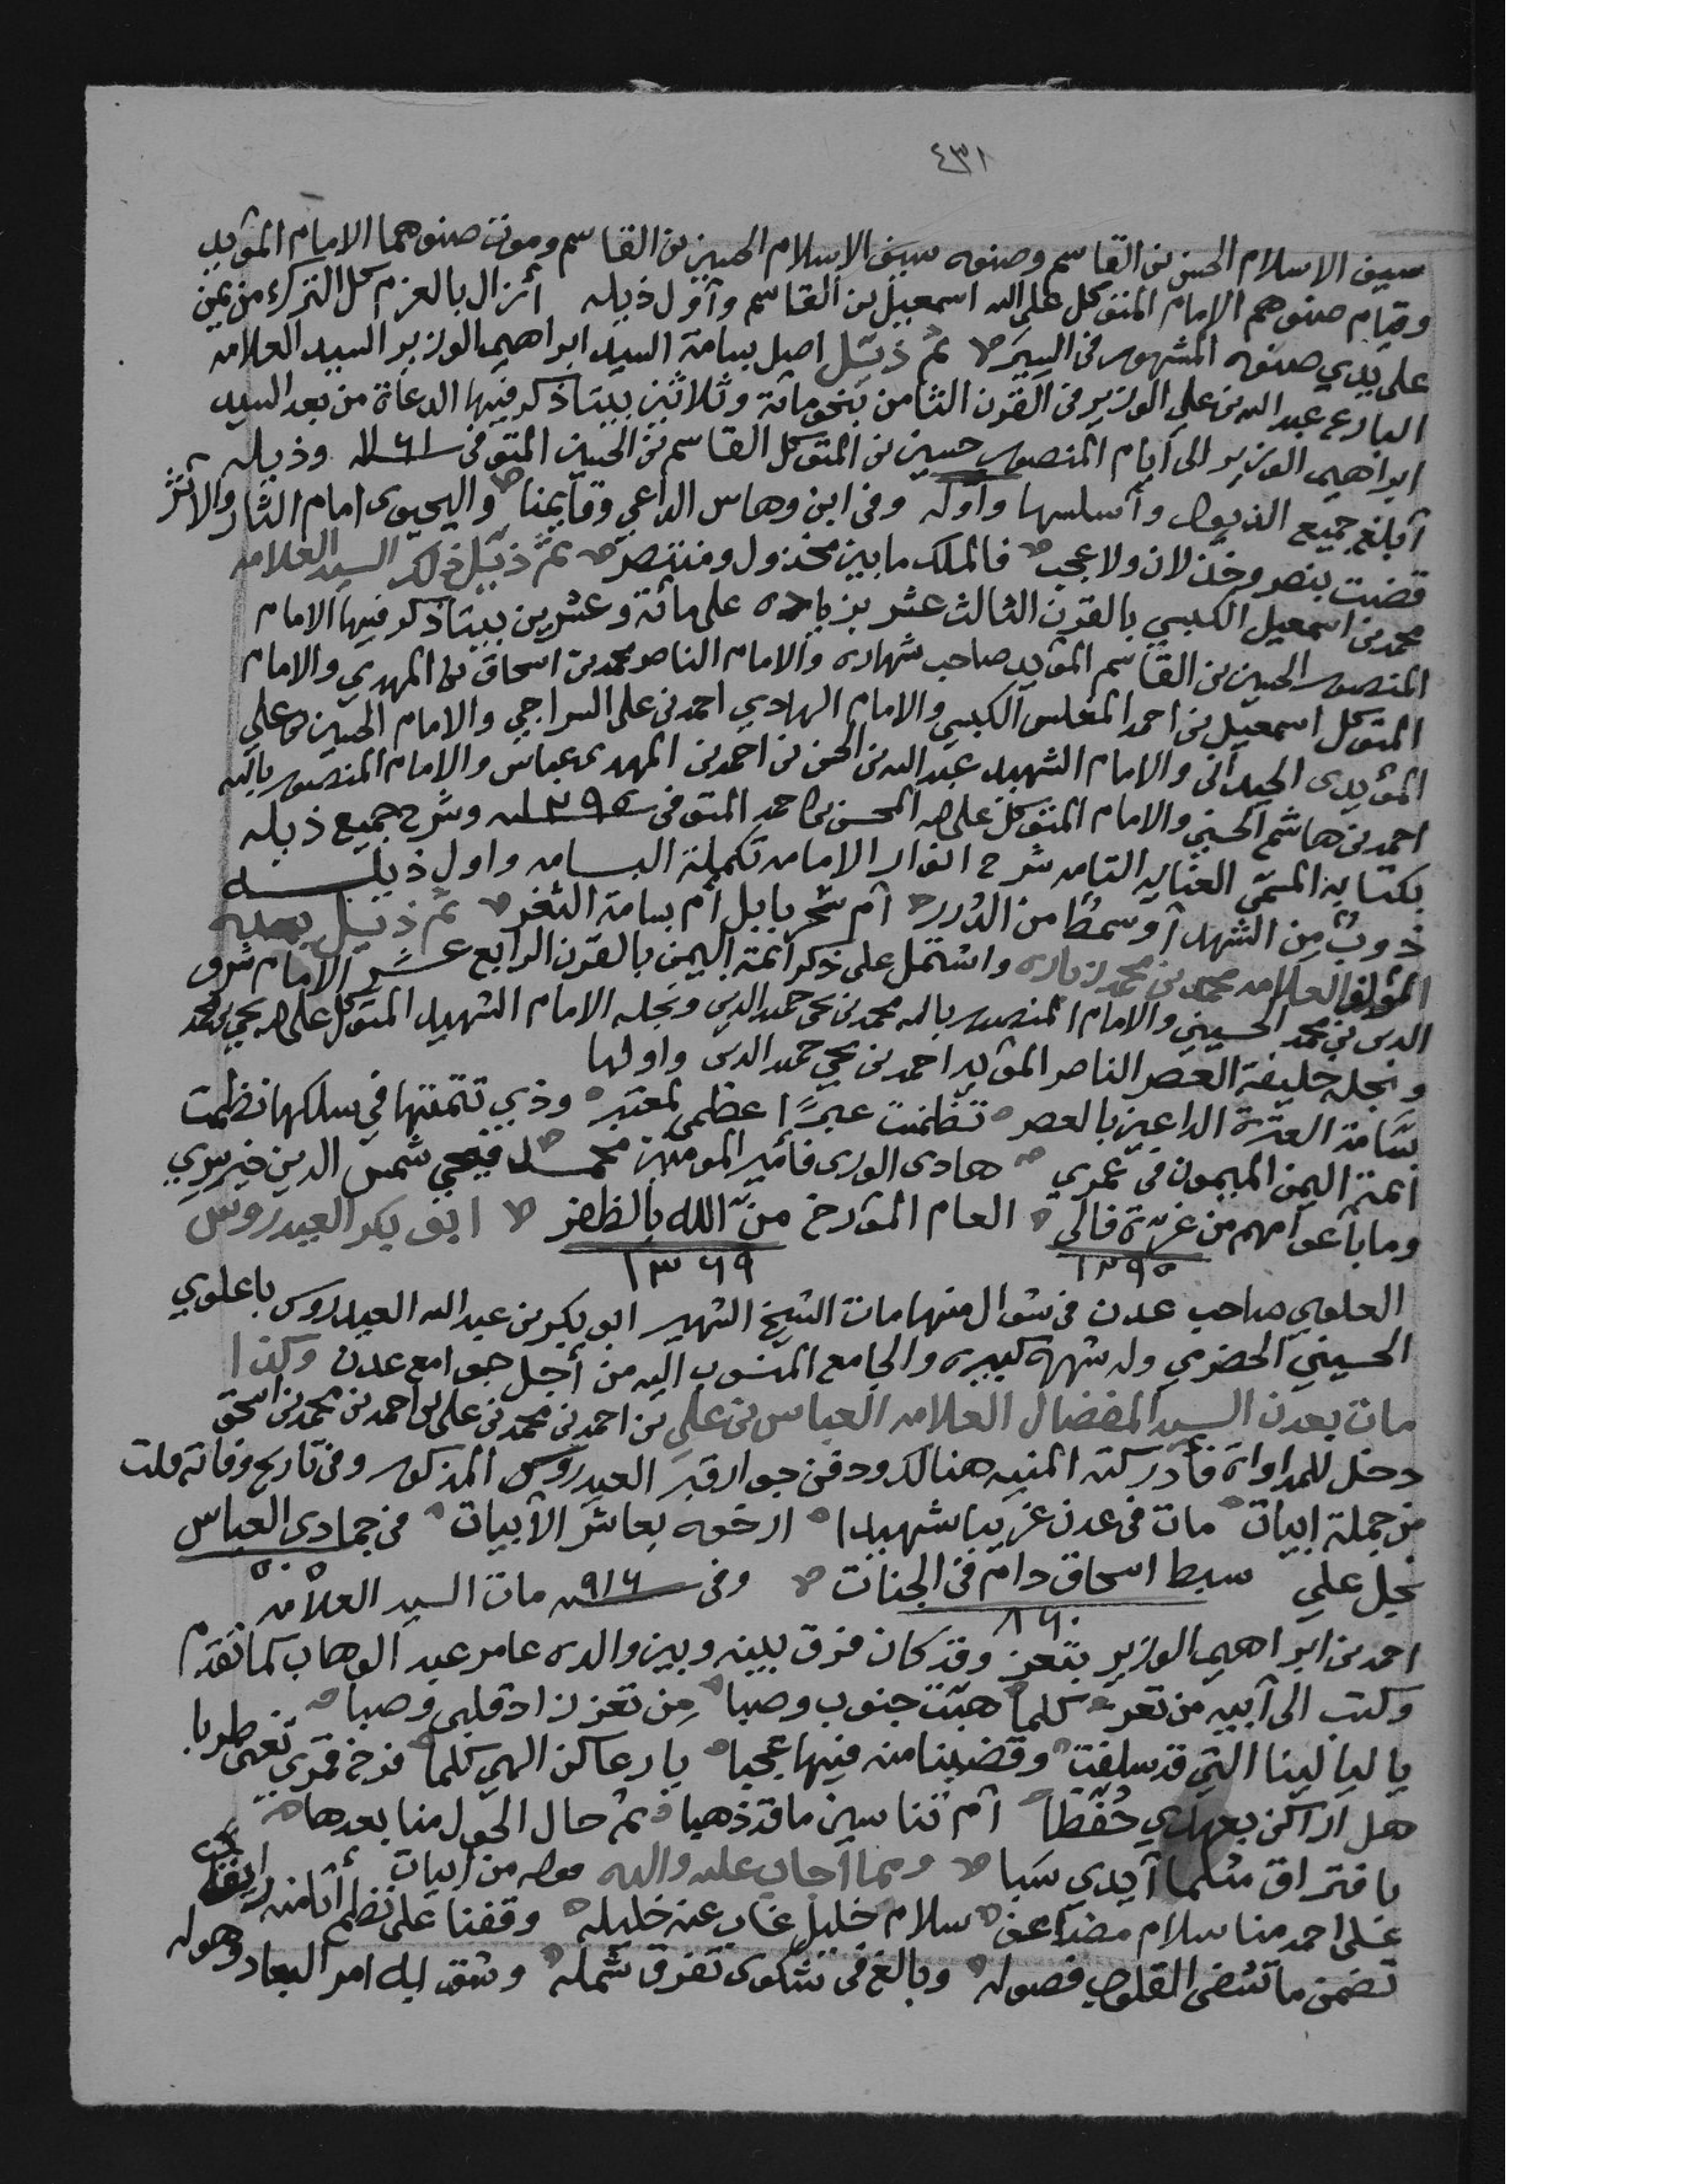 ٤٣١
سيف الاسلام الحسن بن القاسم وصنوه سيف الاسلام الحسين بن القاسم وموت صنوهما الامام المؤيد
وقيام صنوهم الامام المتوكل على الله اسمعيل بن القاسم وأول ذيله أزال بالعزم كل الترك من يمن
على يدي صنوه المشهور في السير ثم ذيل اصل بسامة السيد ابراهيم الوزير السيد العلامه
البارع عبد الله بن علي الوزير في القرن الثامن بنحو مائة وثلاثين بيتا ذكر فيها الدعاة من بعد السيد
ابراهيم الوزير الى أيام المنصور حسين بن المتوكل القاسم بن الحسين المتوفى ١١٦١ وذيله
أبلغ جميع الذيول وأسلسها وأوله وفي ابن وهاس الداعي وقايمنا واليحيوى امام الثار والاثر
قضت بنصر وخذلان ولا عجب فالملك ما بين مخذول ومنتصر ثم ذيل ذلك السيد العلامه
محمد بن اسمعيل الكبسي بالقرن الثالث عشر بزياده على مائة وعشرين بيتا ذكر فيها الامام
المنصور الحسين بن القاسم المؤيد صاحب شهاره والامام الناصر محمد بن اسحاق بن المهدي والامام
المتوكل اسمعيل بن احمد المغلس الكبسي والامام الهادي احمد بن علي السراجي والامام الحسين بن علي
المؤيدى الحيدانى والامام الشهيد عبد الله بن الحسن بن احمد بن المهدى عباس والامام المنصور بالله
احمد بن هاشم الحسني والامام المتوكل على الله المحسن بن احمد المتوفى ١٢٩٥ وشرح جميع ذيله
بكتابه المسمى العنايه التامه شرح انوار الامامه تكملة البسامه واول ذيله
ذوبٌ من الشهد أو سمط من الدرر أم سحر بابل أم بسامة الثغر ثم ذيل بعده
المؤلف العلامه محمد بن محمد زباره واشتمل على ذكر ائمة اليمن بالقرن الرابع عشر الامام شرف
الدين بن محمد الحسيني والامام المنصور بالله محمد بن يحيى حميد الدين ونجله الامام الشهيد المتوكل على الله يحيى بن محمد
ونجله خليفة العصر الناصر المؤيد احمد بن يحيى حميد الدين واولها
بسامة العترة الداعين بالعصر تنظمت عبرًا عظمى لمعتبر وذي تتمتها في سلكها نظمت
ائمة اليمن الميمون في عمري هادى الورى فأمير المومنين محمد فيحيى شمس الدين خير سري
وما بأعوامهم من غرة فالى العام المؤرخ منّ الله بالظفر ابو بكر العيدروس
١٢٩٥ ١٣٦٩
العلوي صاحب عدن في شوال منها مات الشيخ الشهير ابو بكر بن عبد الله العيدروس باعلوي
الحسيني الحضرمي وله شهرة كبيره والجامع المنسوب اليه من أجل جوامع عدن وكذا
مات بعدن السيد المفضال العلامه العباس بن علي بن احمد بن محمد بن علي بن احمد بن محمد بن اسحق
دخل للمداواة فأدركته المنيه هنالك ودفن جوار قبر العيدروس المذكور وفي تاريخ وفاته قلت
من جملة ابيات مات في عدن غريبا شهيدا ارخوه بعاشر الأبيات في جمادى العباس
نجل علي سبط اسحاق دام في الجنات وفي ٩١٦ مات السيد العلامه
احمد بن ابراهيم الوزير بتعز وقد كان فرق بينه وبين والده عامر عبد الوهاب كما تقدم
وكتب الى أبيه من تعز كلما هبّت جنوب وصبا مِن تعز زاد قلبي وصبا
يا ليالينا التي قد سلفت وقضينا منه فيها عجبا يا رعاكن الهي كلما فرخ قمري تغنى طربا
هل اراكن بعهدي حُفّظا أم تناسين ما قد ذهبا ثم حال الحول منا بعدها
بافتراق مثلما أيدي سَبا ومما أجاب عليه والده قوله من أبيات
على احمد منا سلام مضاعف سلام خليل غاب عنه خليله وقفنا على نظم أتانا منه
تضمن ما تشفي القلوب فصوله وبالغ في شكوى تفرق شمله وشق به امر البعاد وهوله